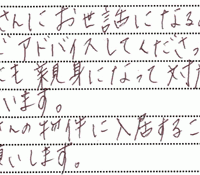 さんにお世話になるの
ずアドバイスしてくださっ
ても親身になって対応
います。
さんの物件に入居するこ
願いします。